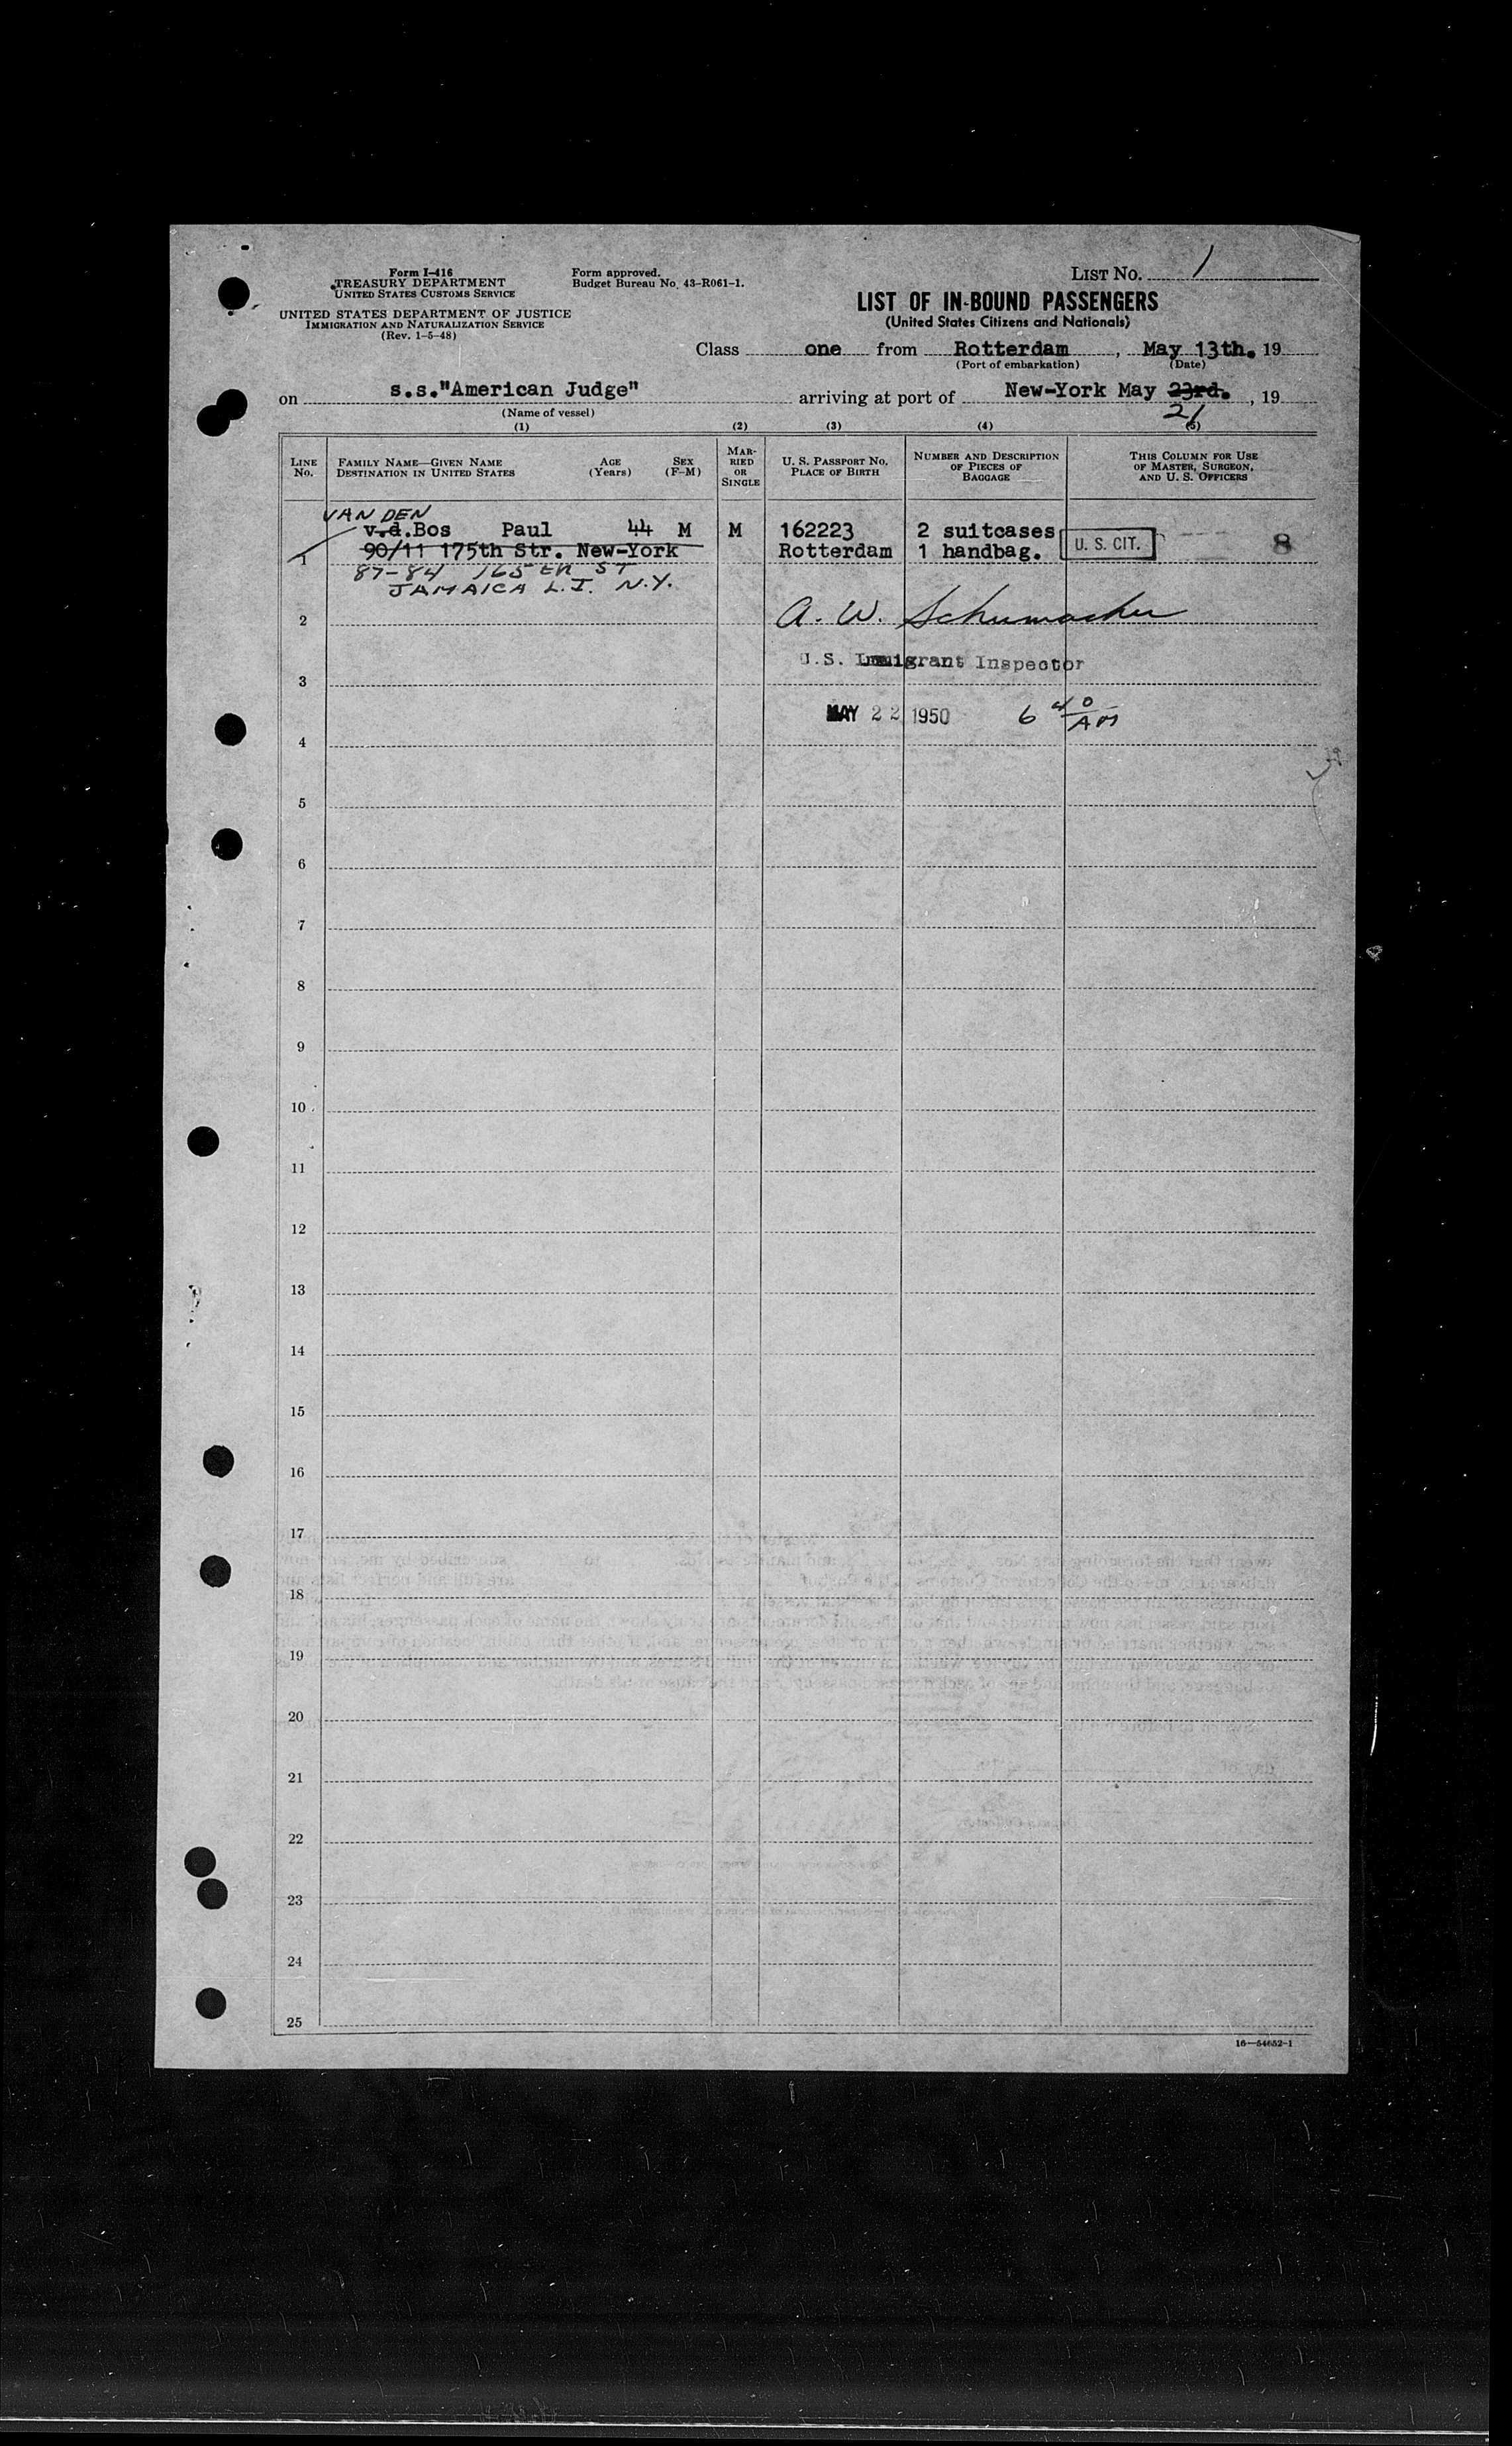 Form I-416
TREASURY DEPARTMENT
UNITED STATES CUSTOMS SERVICE
UNITED STATES DEPARTMENT OF JUSTICE
IMMIGRATION AND NATURALIZATION SERVICE
(Rev. 1-5-48)
Form approved.
Budget Bureau No. 43-R061-1.
LIST NO. 1
LIST OF IN-BOUND PASSENGERS
(United States Citizens and Nationals)
Class one from Rotterdam, May 13th. 19
(Port of embarkation) (Date)
on s.s."American Judge" arriving at port of New-York May 23rd., 19
21
(Name of vessel)
(1) (2) (3) (4) (5)
LINE NO.
FAMILY NAME—GIVEN NAME
DESTINATION IN UNITED STATES
AGE (Years)
SEX (F-M)
MARRIED OR SINGLE
U. S. PASSPORT NO.
PLACE OF BIRTH
NUMBER AND DESCRIPTION OF PIECES OF BAGGAGE
THIS COLUMN FOR USE OF MASTER, SURGEON, AND U. S. OFFICERS
VAN DEN
v.d.Bos Paul 44 M M 162223 2 suitcases
90/11 175th Str. New-York Rotterdam 1 handbag. U. S. CIT. 8
1
87-84 165 ST
JAMAICA L.I. N.Y.
2 A. W. Schumacher
U.S. Immigrant Inspector
3
MAY 22 1950 6 40 AM
4
5
6
7
8
9
10
11
12
13
14
15
16
17
18
19
20
21
22
23
24
25
16—54652-1